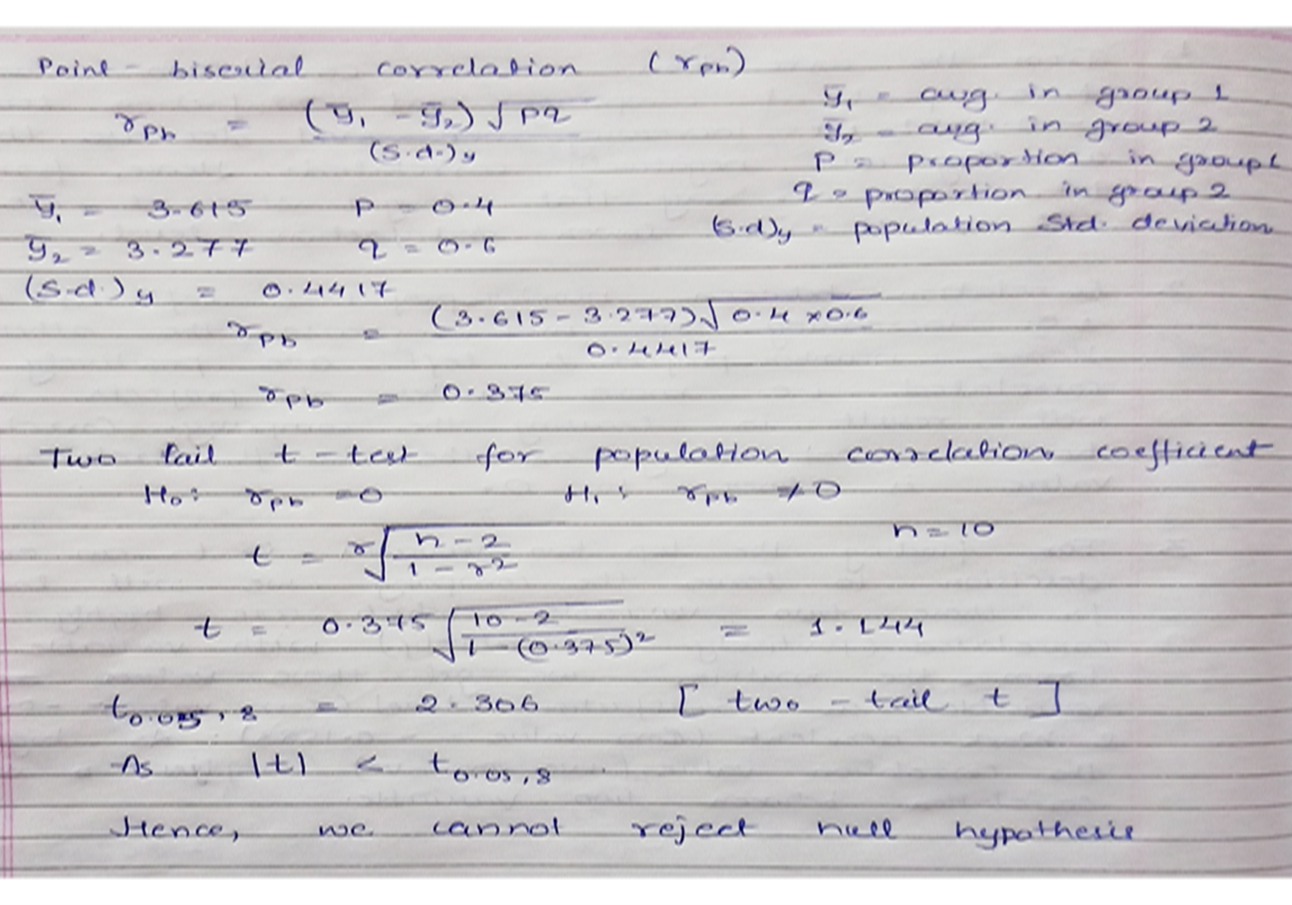 Point - biserial correlation (rpb)
rpb = (ȳ₁ - ȳ₂) √pq / (s.d.)y
ȳ₁ = avg. in group 1
ȳ₂ = avg. in group 2
P = proportion in group 1
q = proportion in group 2
(s.d)y = population std. deviation
ȳ₁ = 3.615 P = 0.4
ȳ₂ = 3.277 q = 0.6
(s.d.)y = 0.4417
rpb = (3.615 - 3.277) √0.4 × 0.6 / 0.4417
rpb = 0.375
Two tail t-test for population correlation coefficient
H₀: rpb = 0 H₁: rpb ≠ 0
n = 10
t = r √(n - 2 / 1 - r²)
t = 0.375 √(10 - 2 / 1 - (0.375)²) = 1.144
t = 2.306 [two - tail t]
As |t| < t0.05, 8
Hence, we cannot reject null hypothesis